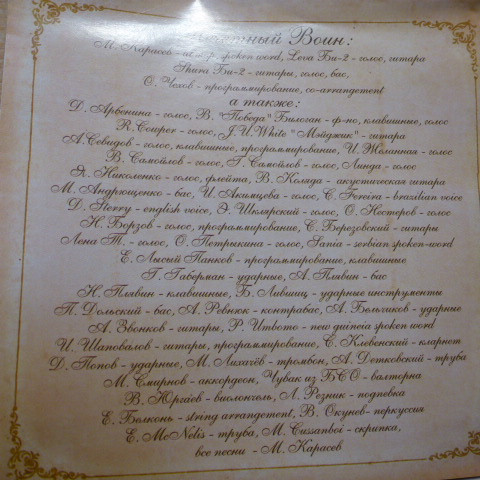 Воин:
М. Карасев - spoken word, Leva Би-2 - голос, гитара
Shura Би-2 - гитары, голос, бас,
О. Чехов - программирование, co-arrangement
а также:
Д. Арбенина - голос, В. "Победа" Билоган - ф-но, клавишные, голос
R. Couper - голос, J.U. White "Мэйджик" - гитара
А. Севидов - голос, клавишные, программирование, И. Желанная - голос
В. Самойлов - голос, Г. Самойлов - голос, Линда - голос
Я. Николенко - голос, флейта, В. Коляда - акустическая гитара
М. Андрющенко - бас, И. Акимцева - голос, C. Fereira - brazilian voice
D. Sterry - english voice, Э. Шклярский - голос, О. Нестеров - голос
Н. Борзов - голос, программирование, С. Березовский - гитары
Лена Т. - голос, О. Петрыкина - голос, Sania - serbian spoken-word
Е. Лысый Панков - программирование, клавишные
Г. Габерман - ударные, А. Плявин - бас
Н. Плявин - клавишные, Б. Лившиц - ударные инструменты
П. Дольский - бас, А. Ревнюк - контрабас, А. Бельчиков - ударные
А. Звонков - гитары, P. Umbomo - new guineia spoken word
И. Шаповалов - гитары, программирование, Е. Клевенский - кларнет
Д. Попов - ударные, М. Лихачёв - тромбон, А. Детковский - труба
М. Смирнов - аккордеон, Чувак из БСО - валторна
В. Юргаев - виолончель, Л. Резник - подпевка
Е. Белконь - string arrangement, В. Окунев - перкуссия
E. McNelis - труба, M. Cussanboi - скрипка,
все песни - М. Карасев